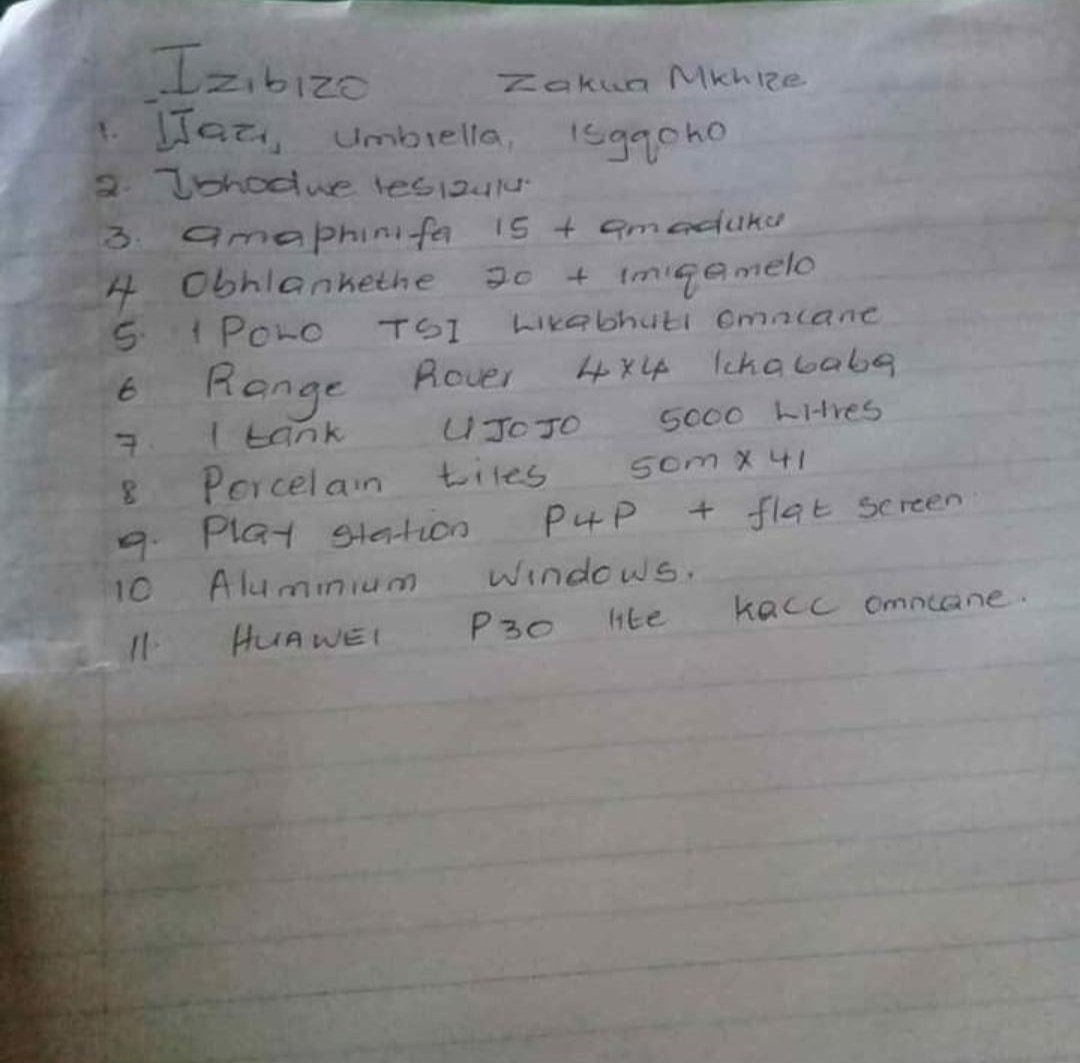 Izibizo Zakwa Mkhize
1. IJazi, umbrella, isgqoko
2. Ibhodwe lesizulu.
3. amaphinifa 15 + amaduku
4 Obhlankethe 20 + imiqamelo
5. 1 POLO TSI Likabhuti omncane
6 Range Rover 4x4 Ikababa
7. 1 tank UJOJO 5000 Litres
8 Porcelain tiles 50m x 41
9. Play station P4P + flat screen
10 Aluminium windows.
11. HUAWEI P30 lite kacc omncane.